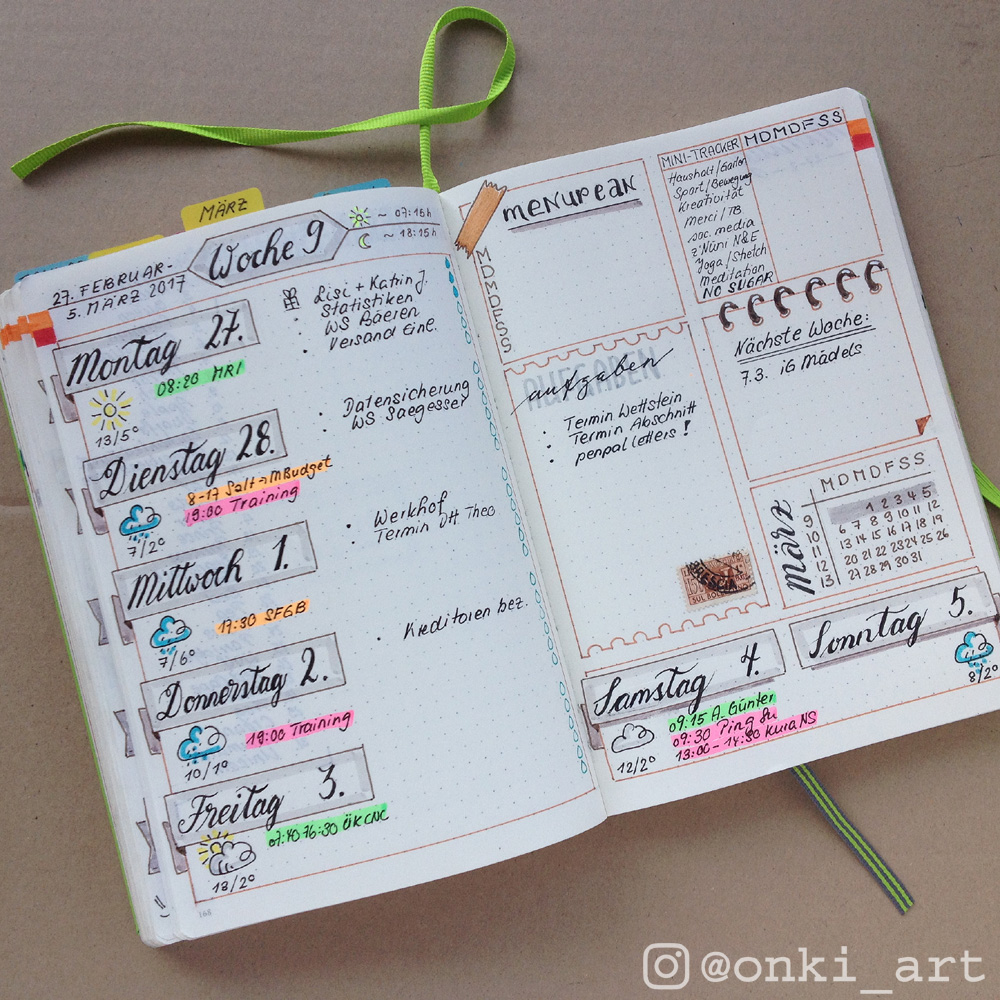 MÄRZ
27. FEBRUAR -
5. MÄRZ 2017
Woche 9
~ 07:15h
~ 18:15h
Montag 27.
08:20 MRI
13/5°
Lisi + Katrin J.
Statistiken
WS Bäeren
Versand Eine.
Dienstag 28.
8-17 Salt → MBudget
19:00 Training
7/2°
Datensicherung
WS Saegesser
Mittwoch 1.
17:30 SFGB
7/6°
Werkhof
Termin Ott Theo
Donnerstag 2.
19:00 Training
10/1°
Kreditoren bez.
Freitag 3.
ÖKCNC
13/2°
168
MENUPLAN
M D M D F S S
AUFGABEN
aufgaben
Termin Wettstein
Termin Abschnitt
penpal letters!
MINI-TRACKER M D M D F S S
Haushalt/Garten
Sport/Bewegung
Kreativität
Merci / TB
soc. media
z'Nüni N&E
Yoga / Stretch
Meditation
NO SUGAR
Nächste Woche:
7.3. iG Mädels
März
M D M D F S S
9 1 2 3 4 5
10 6 7 8 9 10 11 12
11 13 14 15 16 17 18 19
12 20 21 22 23 24 25 26
13 27 28 29 30 31
Samstag 4.
09:15 A. Günter
09:30 Ping Su
13:00 - 14:30
12/2°
Sonntag 5.
8/2°
@onki_art